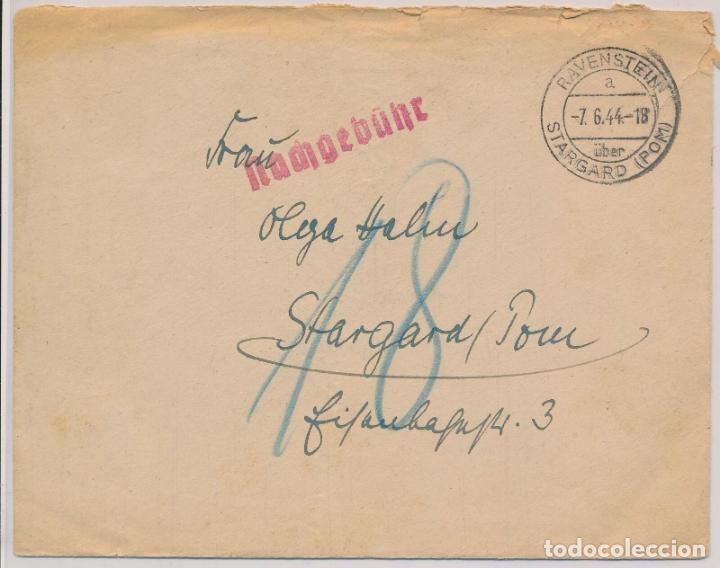 RAVENSTEIN
a
-7.6.44.-18
über
STARGARD (POM)
Nachgebühr
Frau
Olga Halm
18
Stargard/Pom
Eisenbahnstr. 3
todocoleccion
todocoleccion.net